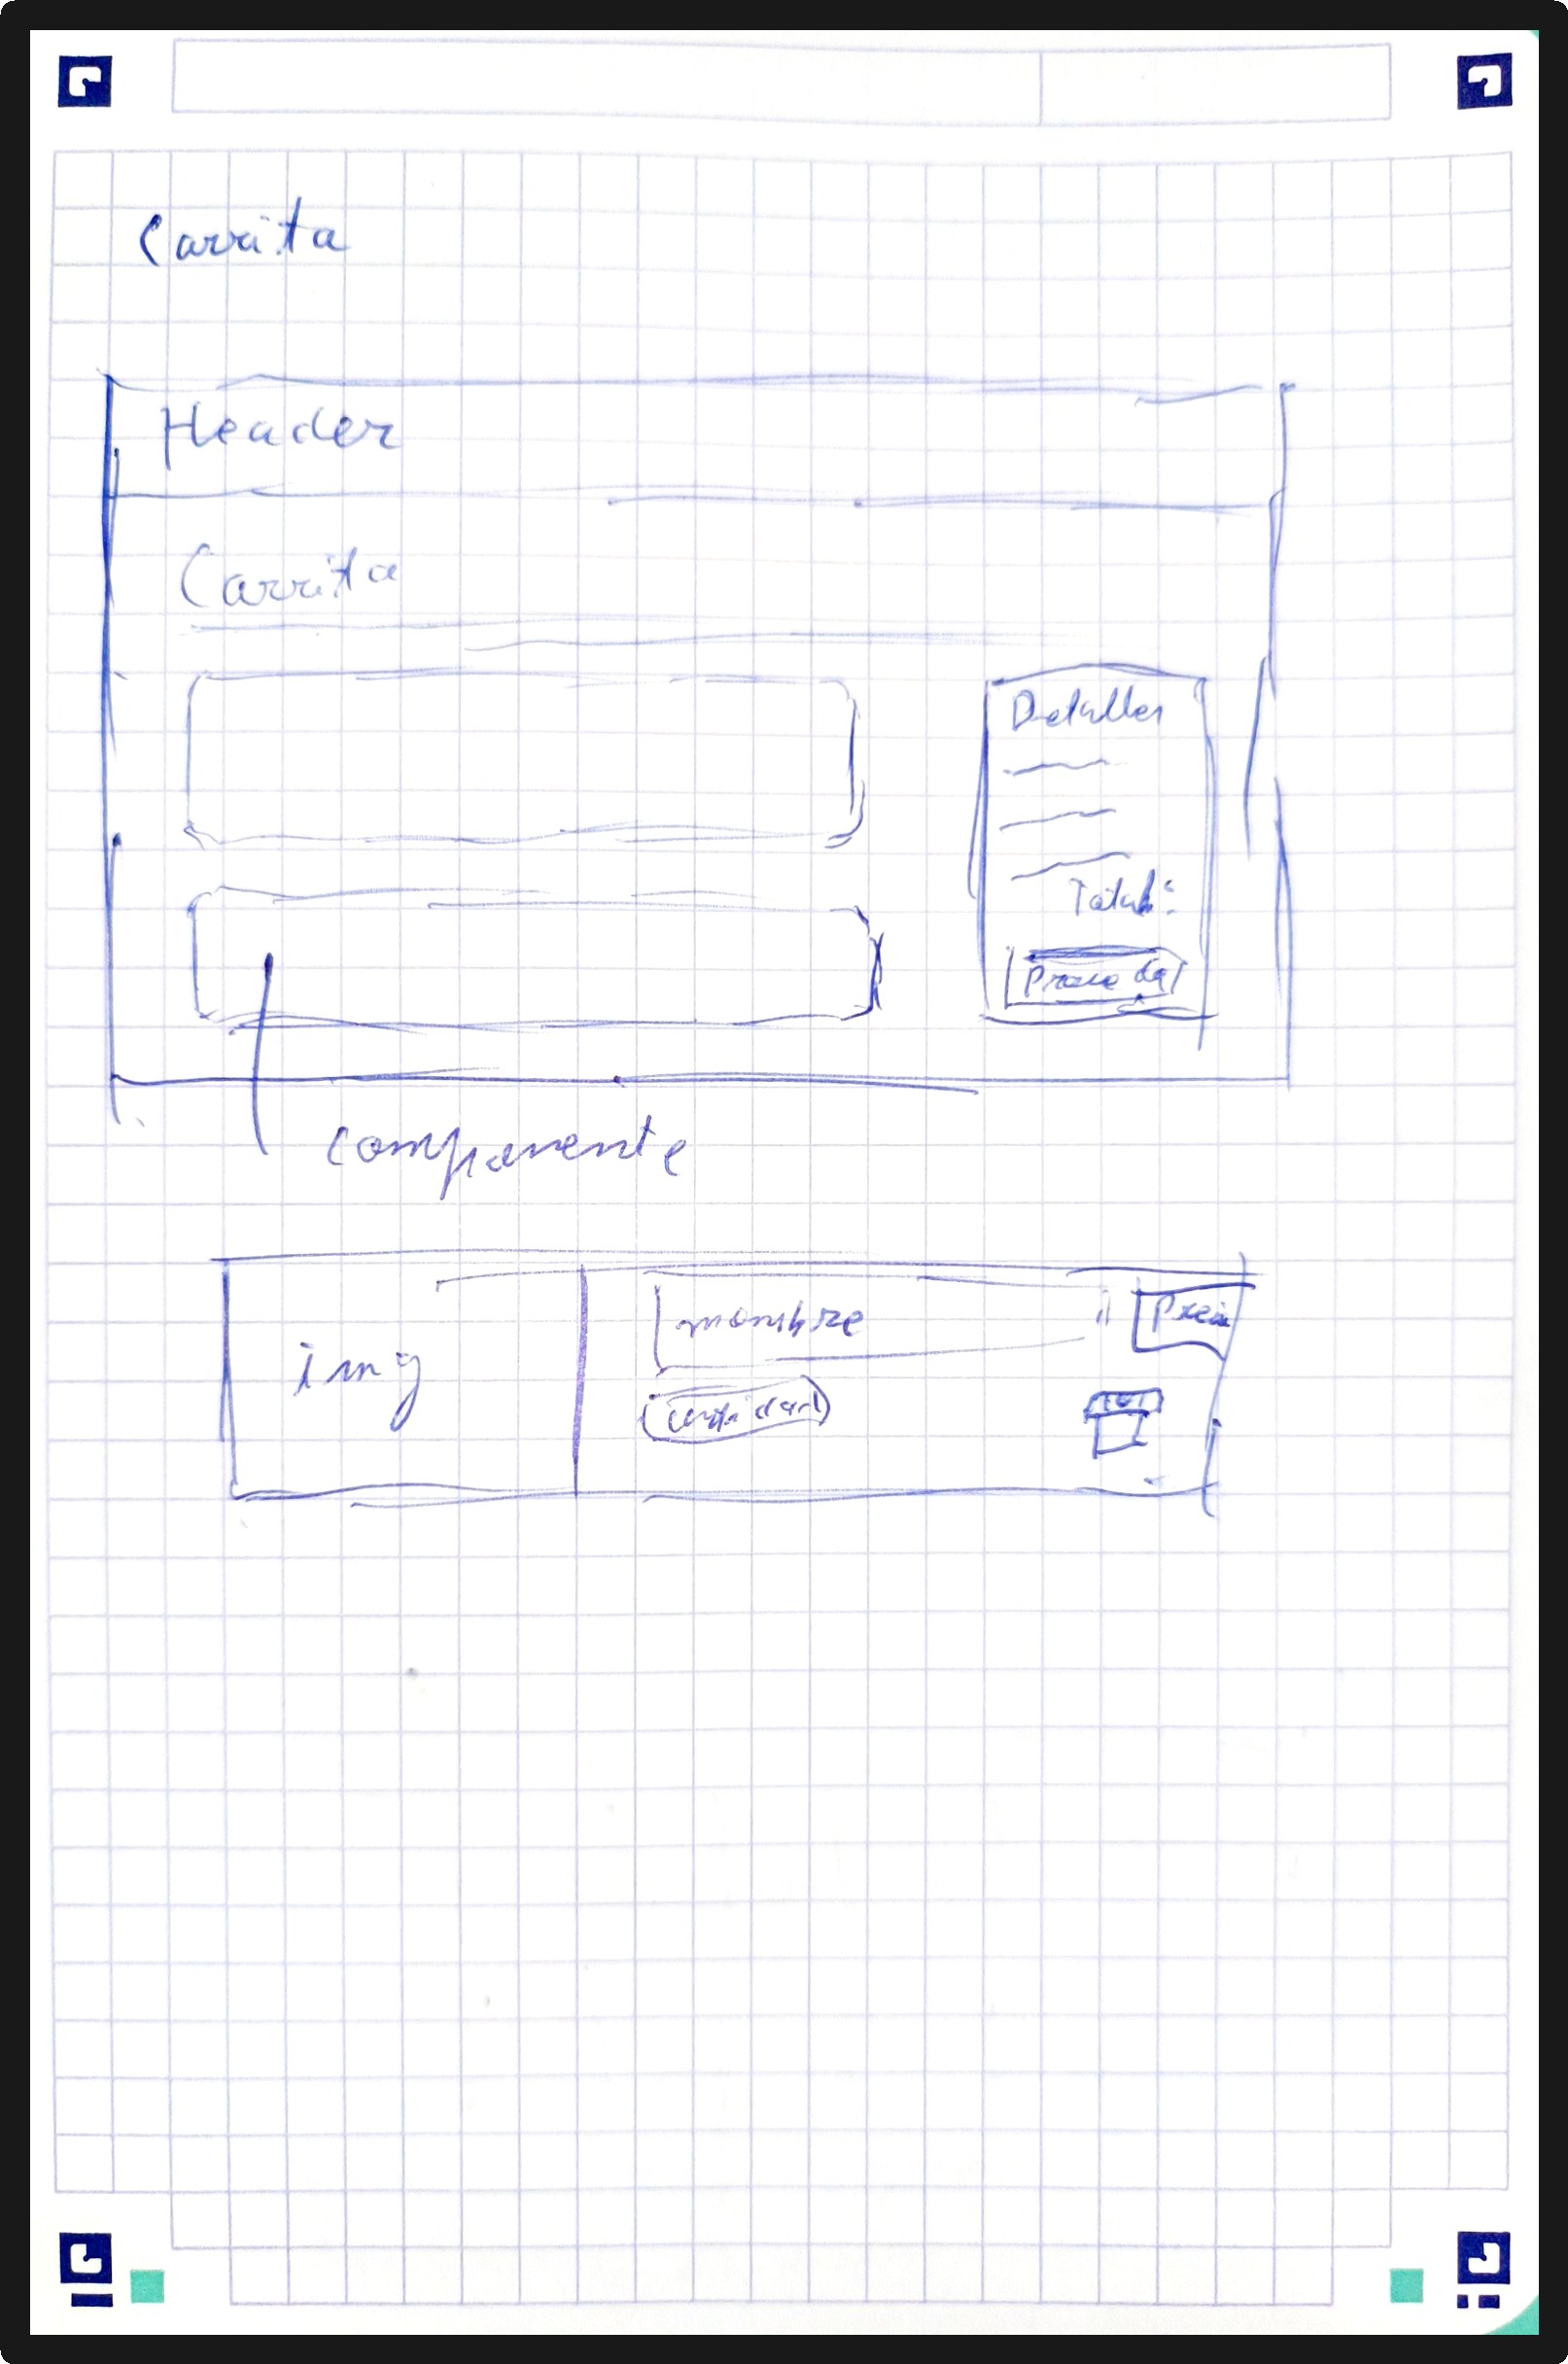 Carrito
Header
Carrito
Detalles
Total:
componente
img
nombre
Precio
cantidad